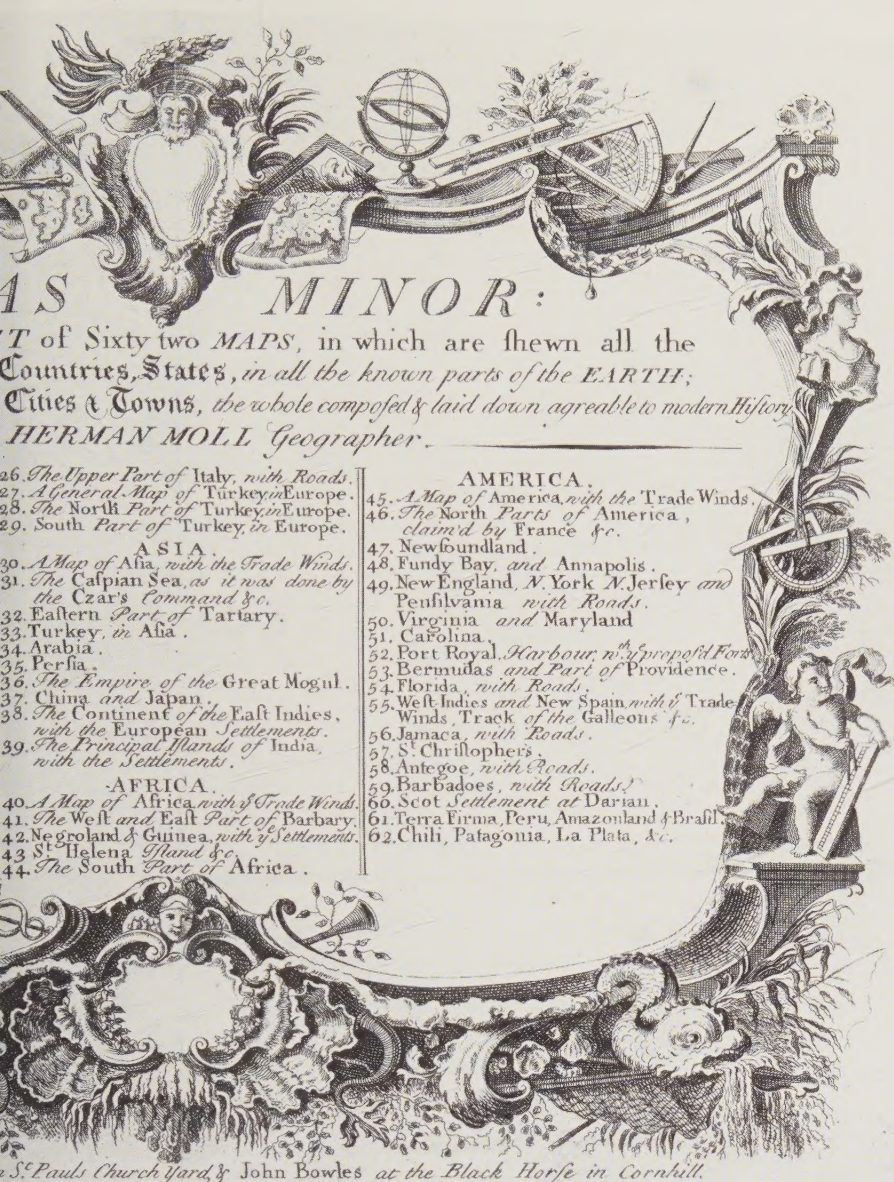 AS MINOR:
T of Sixty two MAPS, in which are ſhewn all the
Countries, States, in all the known parts of the EARTH;
Cities & Towns, the whole compoſed & laid down agreable to modern Hiſtory
HERMAN MOLL Geographer.
26. The Upper Part of Italy, with Roads.
27. A General Map of Turkey, in Europe.
28. The North Part of Turkey, in Europe.
29. South Part of Turkey, in Europe.
ASIA.
30. A Map of Aſia, with the Trade Winds.
31. The Caſpian Sea, as it was done by
the Czar's Command &c.
32. Eaſtern Part of Tartary.
33. Turkey, in Aſia.
34. Arabia.
35. Perſia.
36. The Empire of the Great Mogul.
37. China and Japan.
38. The Continent of the Eaſt Indies,
with the European Settlements.
39. The Principal Iſlands of India,
with the Settlements.
AFRICA.
40. A Map of Africa with yͤ Trade Winds.
41. The Weſt and Eaſt Part of Barbary.
42. Negroland & Guinea, with yͤ Settlements.
43 Sᵗ Helena Iſland &c.
44. The South Part of Africa.
AMERICA.
45. A Map of America, with the Trade Winds.
46. The North Parts of America,
claim'd by France &c.
47. Newfoundland.
48. Fundy Bay, and Annapolis.
49. New England, N. York N. Jerſey and
Penſilvania with Roads.
50. Virginia and Maryland
51. Carolina.
52. Port Royal Harbour, wᵗʰ yͤ propoſ'd Forts
53. Bermudas and Part of Providence.
54. Florida, with Roads.
55. Weſt Indies and New Spain, with yͤ Trade
Winds, Track of the Galleons &c.
56. Jamaca, with Roads.
57. Sᵗ Chriſtophers.
58. Antegoe, with Roads.
59. Barbadoes, with Roads.
60. Scot Settlement at Darian.
61. Terra Firma, Peru, Amazonland & Braſil.
62. Chili, Patagonia, La Plata, &c.
Sᵗ Pauls Church Yard, & John Bowles at the Black Horſe in Cornhill.